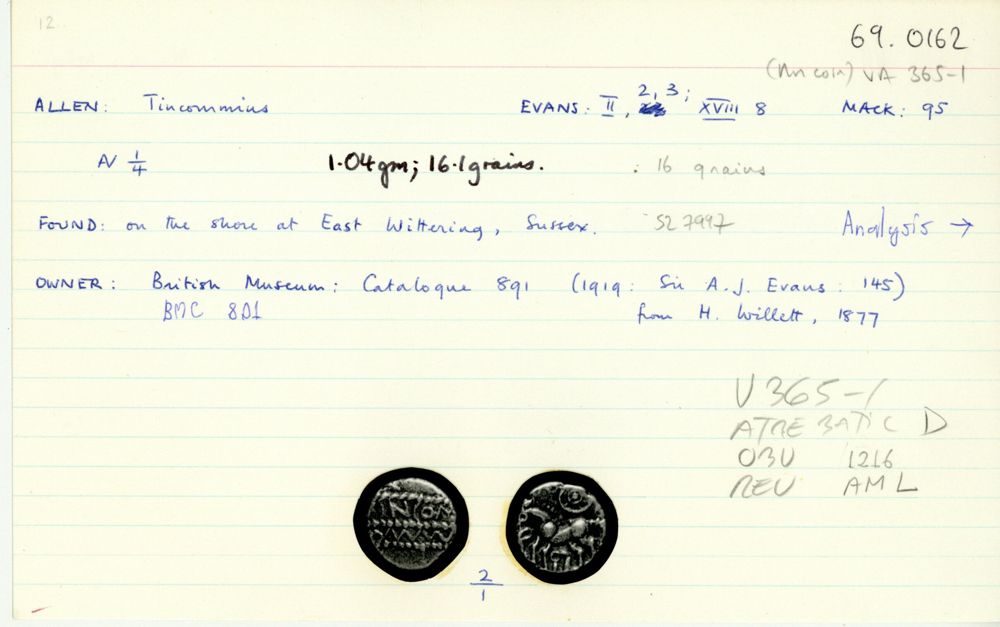 12
69. 0162
VA 365-1
ALLEN: Tincommius EVANS: II, 2, 3; XVIII 8 MACK: 95
AV 1/4 1.04gm; 16.1grains. : 16 grains
FOUND: on the shore at East Wittering, Sussex. SZ 7997 Analysis →
OWNER: British Museum: Catalogue 891 (1919: Sir A.J. Evans: 145)
BMC 801 from H. Willett, 1877
V 365-1
ATREBATIC D
OBV 1216
REV AML
2/1